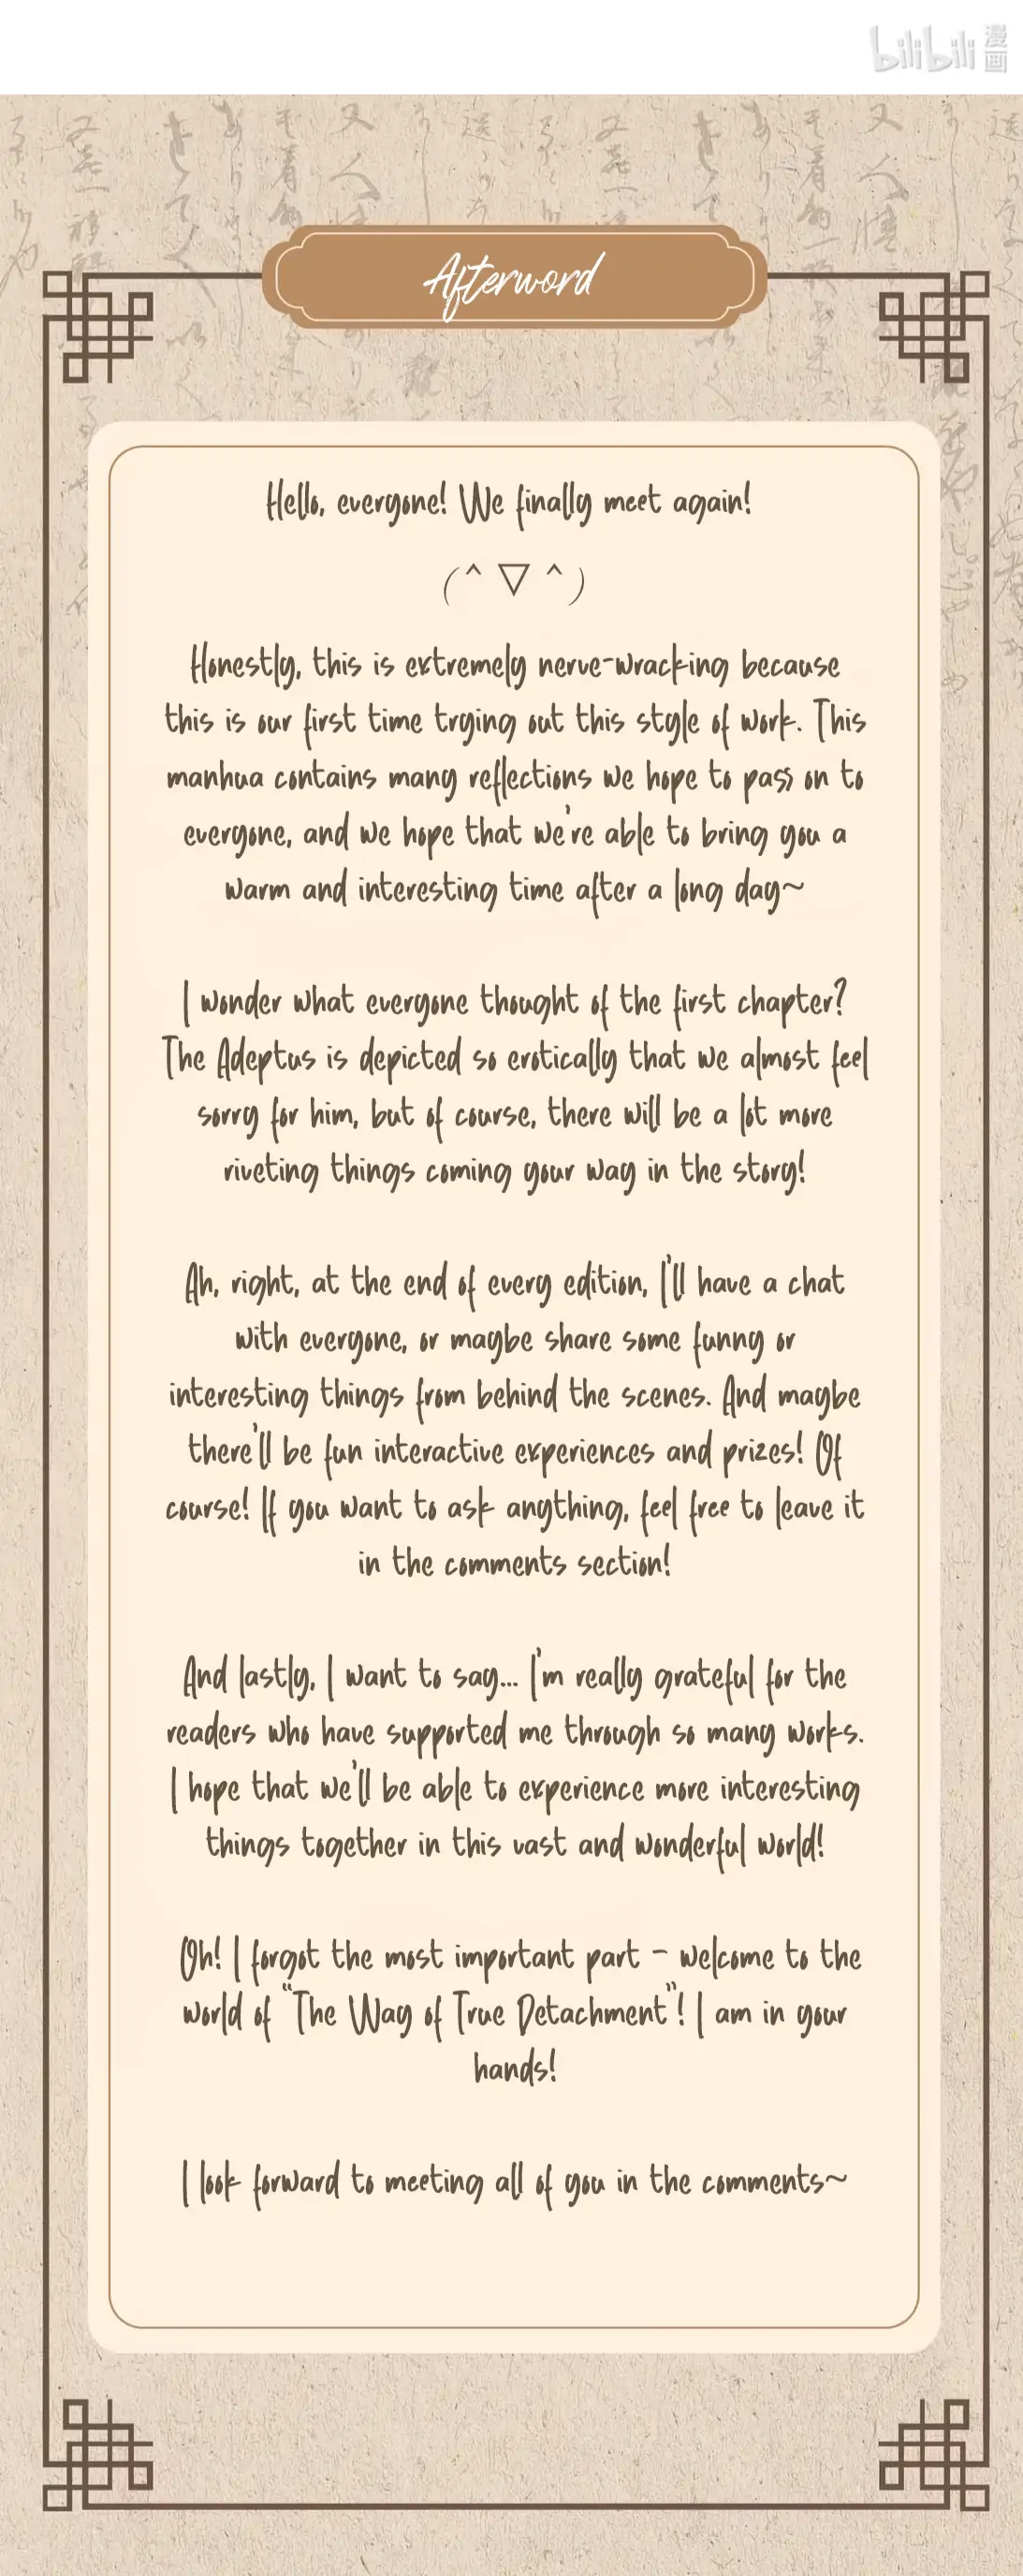 bilibili 漫画
Afterword
Hello, everyone! We finally meet again!
(^▽^)
Honestly, this is extremely nerve-wracking because
this is our first time trying out this style of work. This
manhua contains many reflections we hope to pass on to
everyone, and we hope that we're able to bring you a
warm and interesting time after a long day~
I wonder what everyone thought of the first chapter?
The Adeptus is depicted so erotically that we almost feel
sorry for him, but of course, there will be a lot more
riveting things coming your way in the story!
Ah, right, at the end of every edition, I'll have a chat
with everyone, or maybe share some funny or
interesting things from behind the scenes. And maybe
there'll be fun interactive experiences and prizes! Of
course! If you want to ask anything, feel free to leave it
in the comments section!
And lastly, I want to say... I'm really grateful for the
readers who have supported me through so many works.
I hope that we'll be able to experience more interesting
things together in this vast and wonderful world!
Oh! I forgot the most important part - welcome to the
world of "The Way of True Detachment"! I am in your
hands!
I look forward to meeting all of you in the comments~